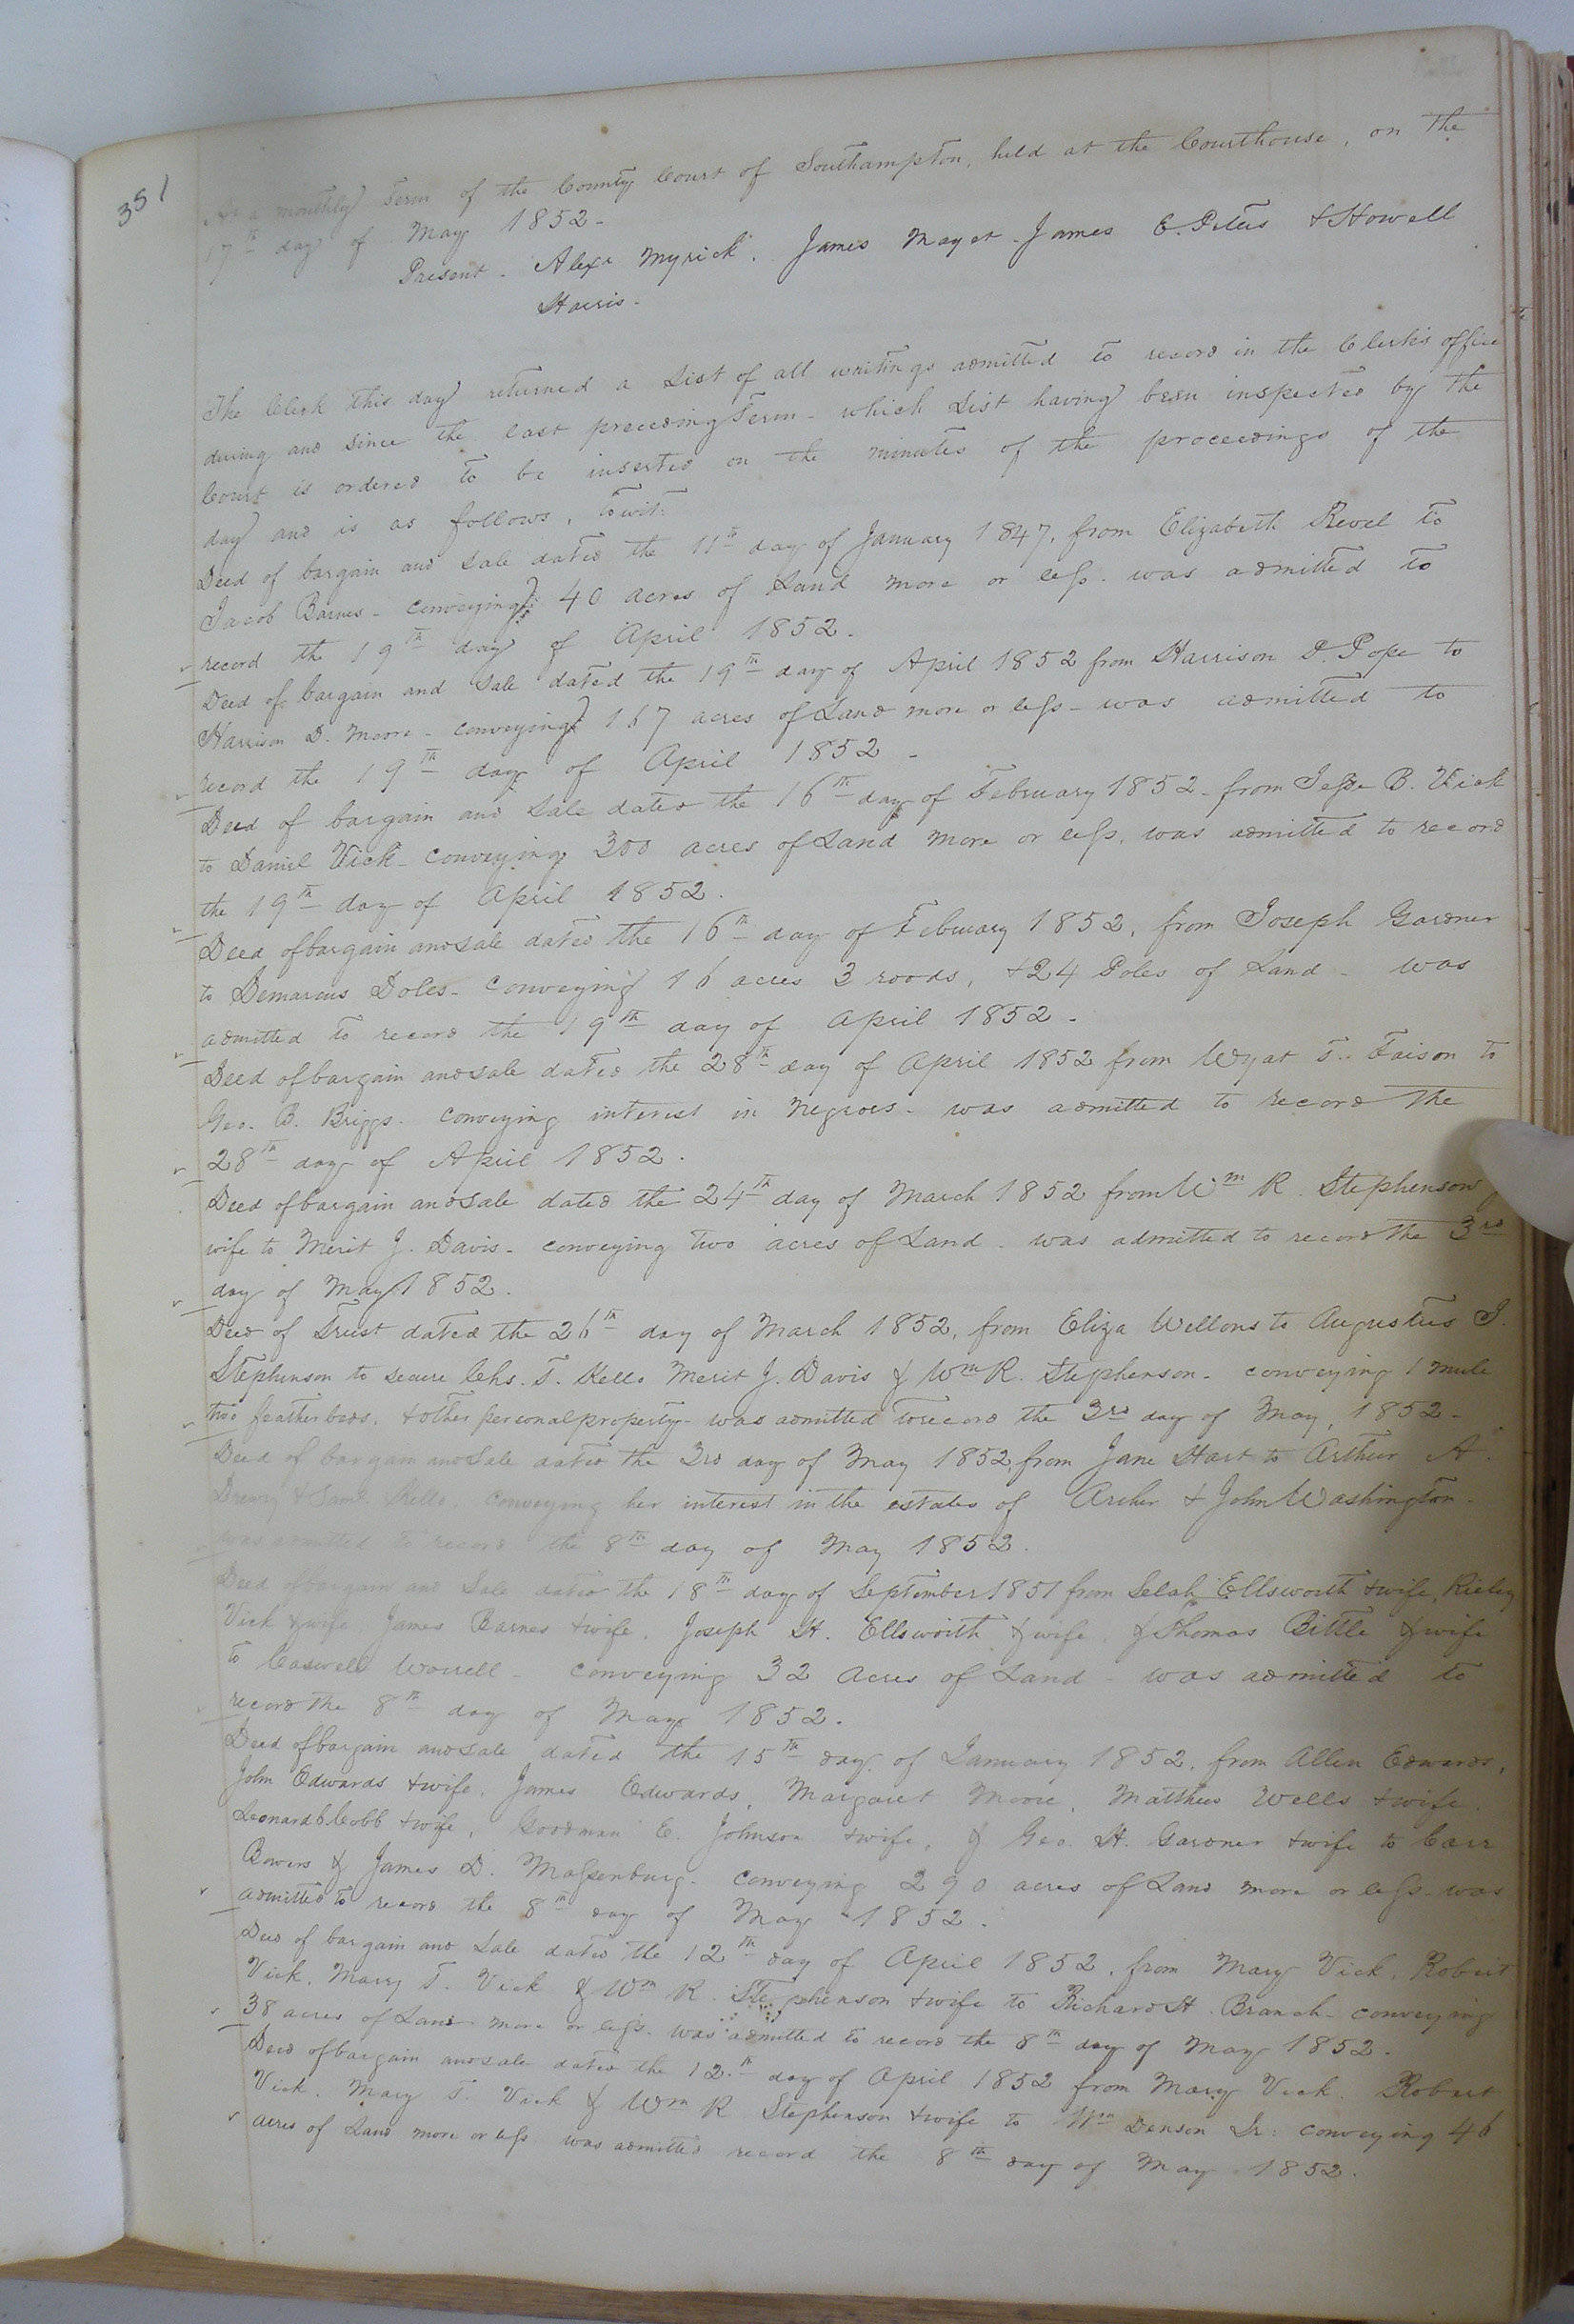 351
At a monthly Term of the County Court of Southampton, held at the Courthouse, on the
17th day of May 1852-
Present - Alexr Myrick. James Maget. James E. Peters & Howell
Harris-
The Clerk this day returned a List of all writings admitted to record in the Clerk's office
during and since the last preceding Term- which List having been inspected by the
Court is ordered to be inserted on the minutes of the proceedings of the
day and is as follows, Towit:
Deed of bargain and sale dated the 11th day of January 1847, from Elizabeth Revel to
Jacob Barnes- conveying 40 acres of Land more or less. was admitted to
record the 19th day of April 1852.
Deed of bargain and sale dated the 19th day of April 1852 from Harrison D. Pope to
Harrison D. Moore- conveying 167 acres of Land more or less- was admitted to
record the 19th day of April 1852-
Deed of bargain and sale dated the 16th day of February 1852- from Jesse B. Vick
to Daniel Vick- conveying 300 acres of Land more or less, was admitted to record
the 19th day of April 1852.
Deed of bargain and sale dated the 16th day of February 1852, from Joseph Gardner
to Demarcus Doles- conveying 16 acres 3 roods, & 24 Poles of Land- was
admitted to record the 19th day of April 1852-
Deed of bargain and sale dated the 28th day of April 1852 from Wyat T. Faison to
Geo. B. Briggs- conveying interest in negroes- was admitted to record the
28th day of April 1852.
Deed of bargain and sale dated the 24th day of March 1852 from Wm R. Stephenson
wife to Merit J. Davis- conveying two acres of Land- was admitted to record the 3rd
day of May 1852.
Deed of Trust dated the 26th day of March 1852, from Eliza Wellons to Augustus J.
Stephenson to secure Chs. T. Kello Merit J. Davis & Wm R. Stephenson- conveying 1 mule
two feather beds, & other personal property- was admitted to record the 3rd day of May, 1852-
Deed of bargain and sale dated the 3rd day of May 1852, from Jane Hart to Arthur A.
Drewry & Saml Kello. conveying her interest in the estates of Archer & John Washington-
was admitted to record the 8th day of May 1852.
Deed of bargain and sale dated the 18th day of September 1851 from Selah Ellsworth & wife, Rieley
Vick & wife. James Barnes & wife. Joseph H. Ellsworth & wife, & Thomas Bittle & wife
to Caswell Worrell- conveying 32 acres of Land- was admitted to
record the 8th day of May 1852.
Deed of bargain and sale dated the 15th day of January 1852, from Allen Edwards,
John Edwards & wife, James Edwards, Margaret Moore, Matthew Wells & wife.
Leonard Cobb & wife, Goodman E. Johnson & wife, & Geo. H. Gardner & wife to Carr
Bowers & James D. Massenburg- conveying 290 acres of Land more or less- was
admitted to record the 8th day of May 1852.
Deed of bargain and sale dated the 12th day of April 1852, from Mary Vick, Robert
Vick, Mary T. Vick & Wm R. Stephenson & wife to Richard H. Branch- conveying
38 acres of Land more or less. was admitted to record the 8th day of May 1852.
Deed of bargain and sale dated the 12th day of April 1852 from Mary Vick. Robert
Vick. Mary T. Vick & Wm R Stephenson & wife to Wm Denson Sr: conveying 46
acres of Land more or less was admitted record the 8th day of May 1852.